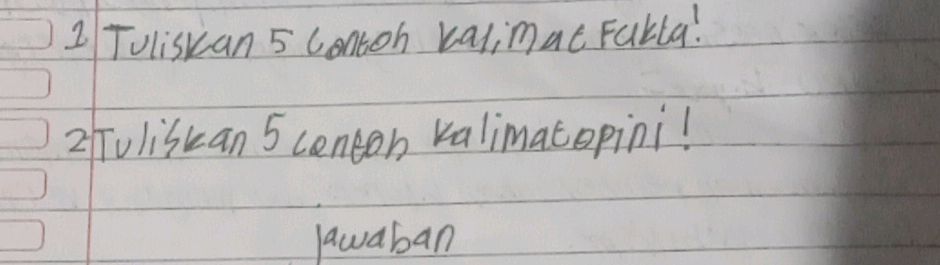 1 Tuliskan 5 Contoh kalimat Fakta!
2 Tuliskan 5 contoh kalimat opini!
jawaban